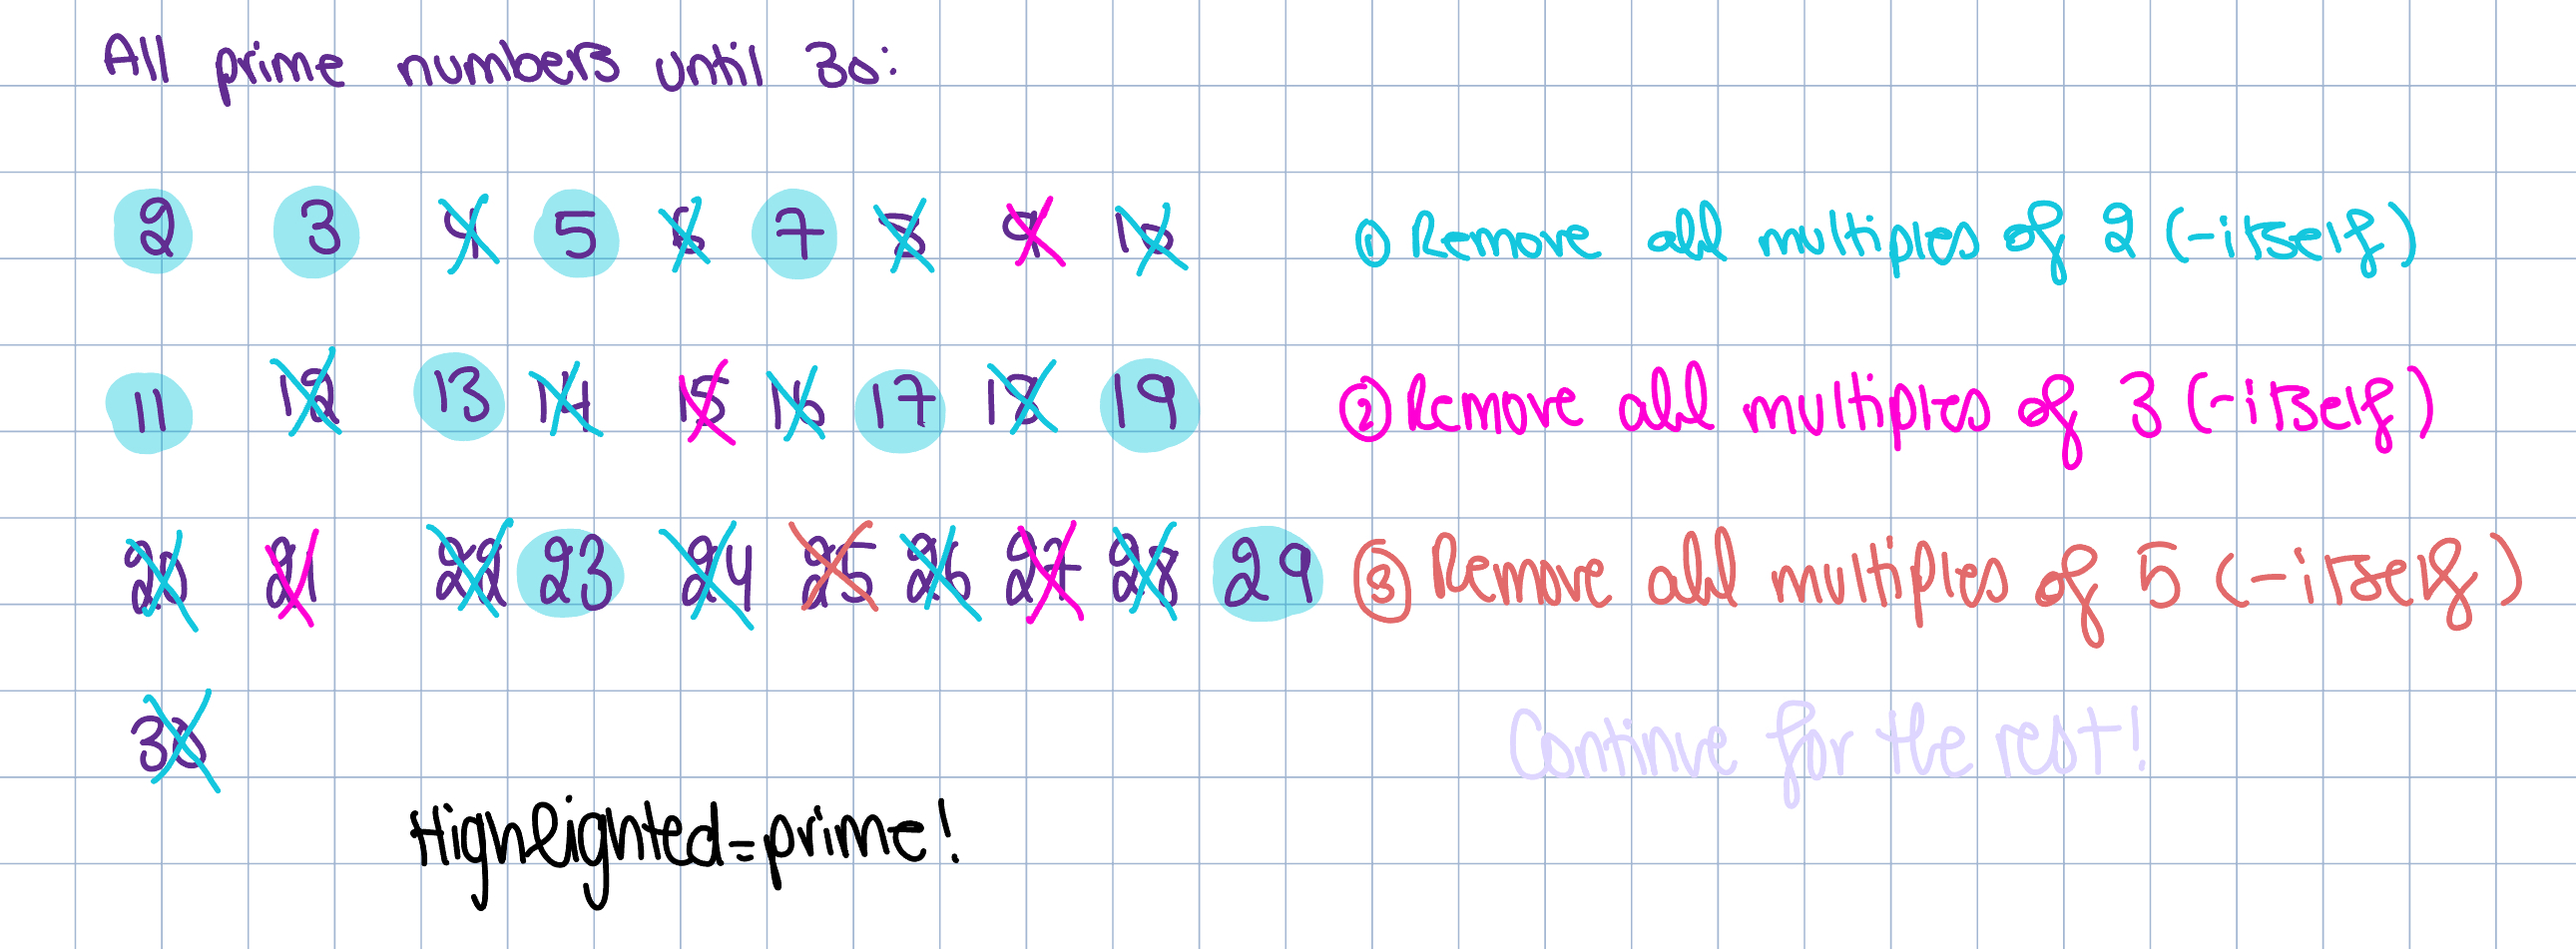 All prime numbers until 30:
2 3 4 5 6 7 8 9 10 ① Remove all multiples of 2 (-itself)
11 12 13 14 15 16 17 18 19 ② Remove all multiples of 3 (-itself)
20 21 22 23 24 25 26 27 28 29 ③ Remove all multiples of 5 (-itself)
30 Continue for the rest!
Highlighted=prime!